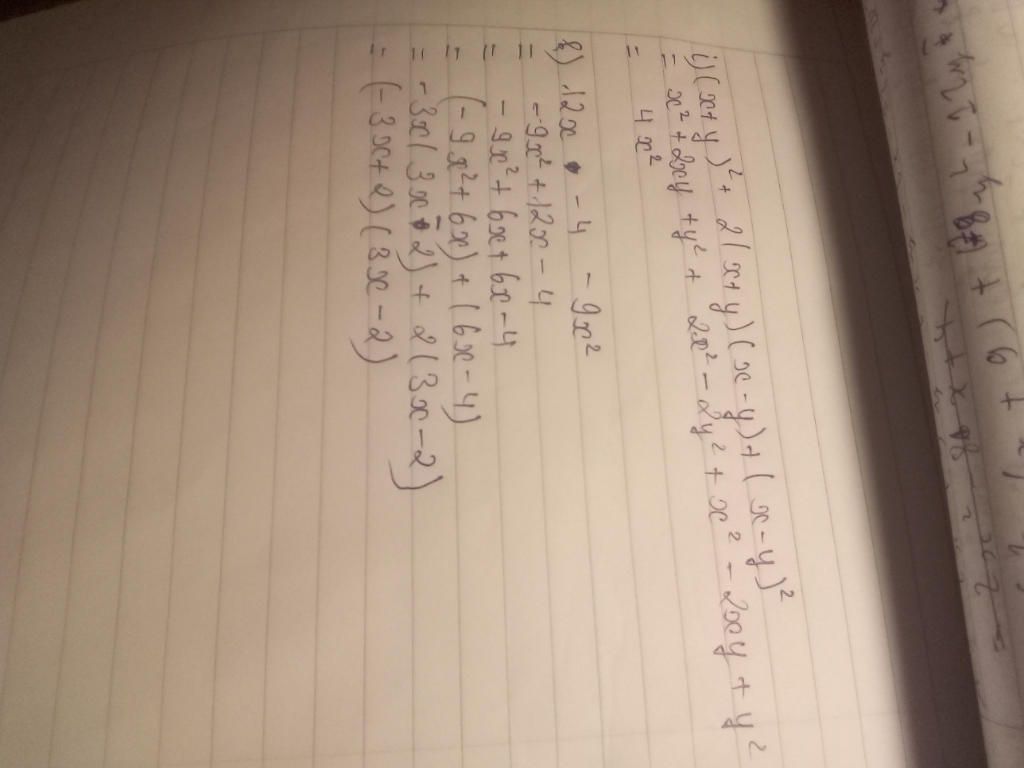 i) (x+y)² + 2(x+y)(x-y)+(x-y)²
= x² + 2xy + y² + 2x² - 2y² + x² - 2xy + y²
= 4x²
k) 12x - 4 - 9x²
= -9x² + 12x - 4
= - 9x² + 6x + 6x - 4
= (-9x² + 6x) + (6x - 4)
= -3x(3x - 2) + 2(3x - 2)
= (-3x + 2)(3x - 2)